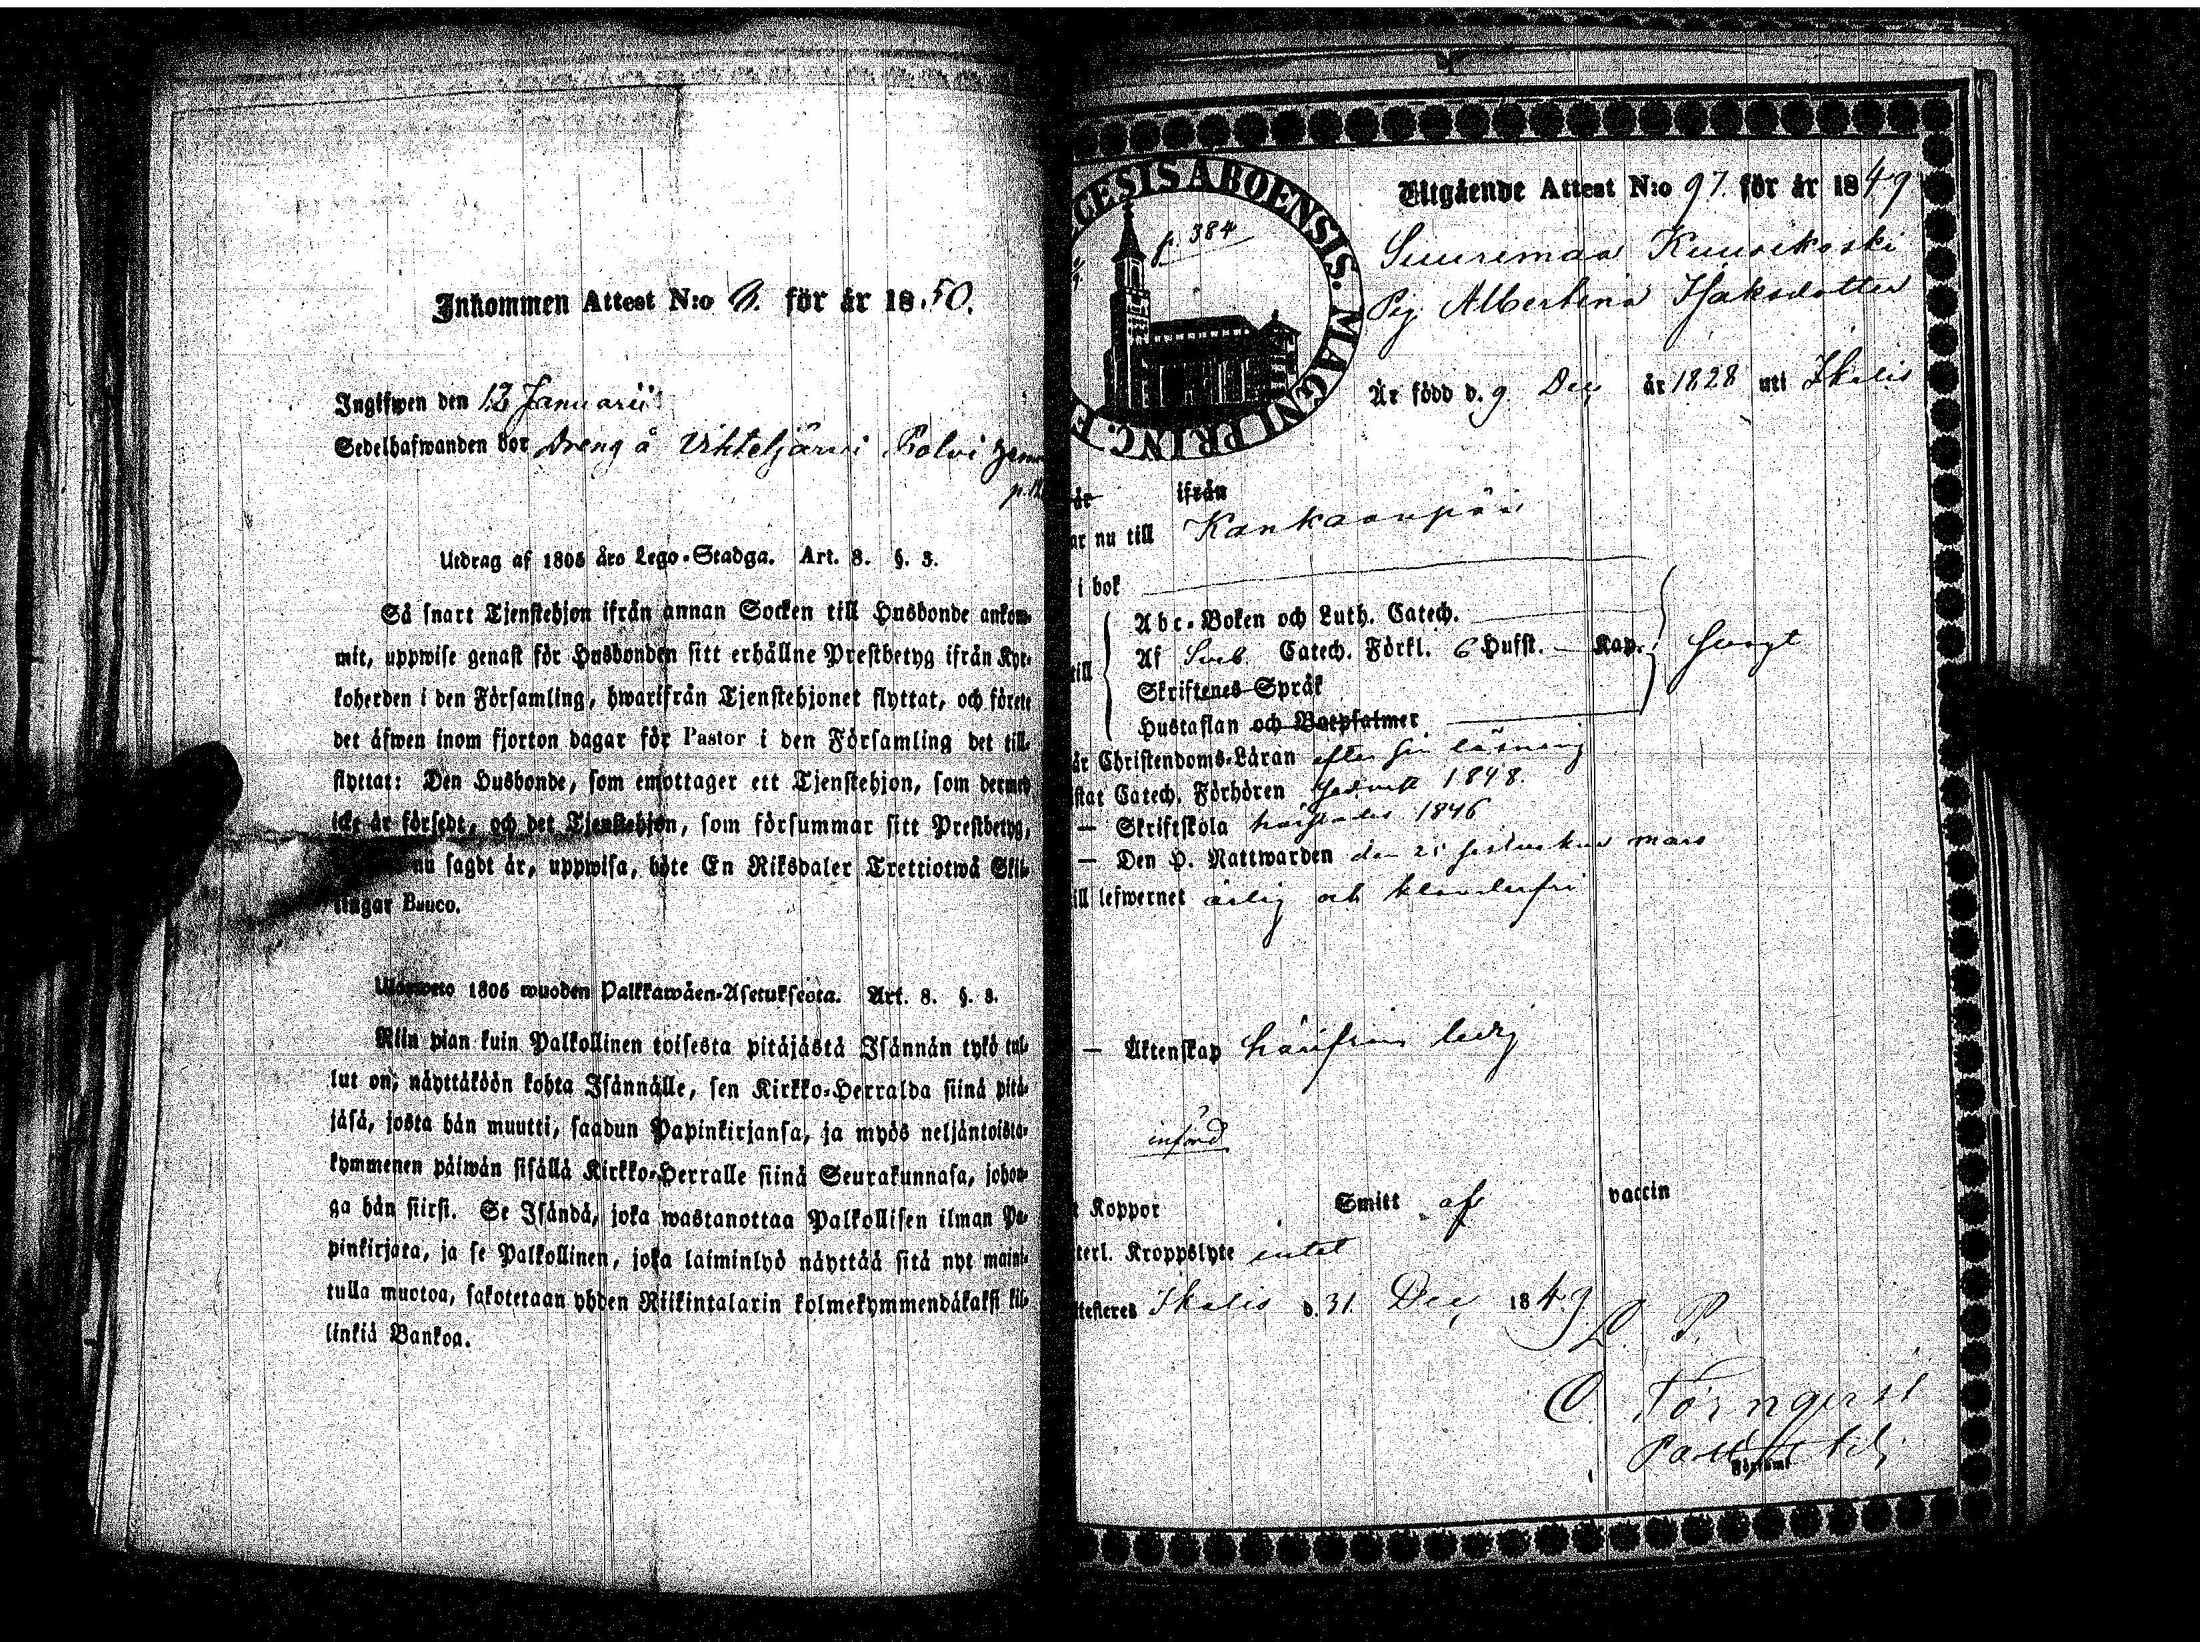 Inkommen Attest N:o 2. för år 1850.
Ingifwen den 12 Januarii
Sedelhafwanden bor Dreng å Vihteljärvi Polvi
Utdrag af 1805 års Lego-Stadga. Art. 8. §. 3.
Så snart Tjenstehjon ifrån annan Socken till Husbonde ankom-
mit, uppwise genast för Husbonden sitt erhållne Prestbetyg ifrån Kyr-
koherden i den Församling, hwarifrån Tjenstehjonet flyttat, och förete
det äfwen inom fjorton dagar för Pastor i den Församling det till-
flyttat: Den Husbonde, som emottager ett Tjenstehjon, som dermed
icke är försedt, och det Tjenstehjon, som försummar sitt Prestbetyg,
nu sagdt är, uppwisa, böte En Riksdaler Trettiotwå Skil-
lingar Banco.
Ulosweto 1805 wuoden Palkkawäen-Asetuksesta. Art. 8. §. 3.
Niin pian kuin Palkollinen toisesta pitäjästä Isännän tykö tul-
lut on, näyttäköön kohta Isännälle, sen Kirkko-Herralda siinä pitä-
jäsä, josta hän muutti, saadun Papinkirjansa, ja myös neljäntoista-
kymmenen päiwän sisällä Kirkko-Herralle siinä Seurakunnasa, johon-
ga hän siirsi. Se Isändä, joka wastanottaa Palkollisen ilman Pa-
pinkirjata, ja se Palkollinen, joka laiminlyö näyttää sitä nyt maini-
tulla muotoa, sakotetaan yhden Riikintalarin kolmekymmendäkaksi kil-
linkiä Bankoa.
CESIS ABOENSIS. MAGNI PRINC. F
p. 384
Utgående Attest N:o 97. för år 1849
Suurimaa Kuusikoski
Pig. Albertina Isaksdotter
Är född d. 9 Dec, år 1828 uti Ikalis
är ifrån
ar nu till Kankaanpää
i bok
Abc-Boken och Luth. Catech.
till Af Sveb. Catech. Förkl. 6 Hufst. — Kap.
Skriftenes Språk
Hustaflan och Botpsalmer
år Christendoms-Läran efter sin läsning
stat Catech. Förhören 1848.
— Skriftskola 1846
— Den H. Nattwarden den mars
ill lefwernet ärlig och klanderfri
— Äktenskap härifrån ledig
införd
t Koppor Smitt af vaccin
terl. Kroppslyte intet
ttesteres Ikalis d. 31. Dec, 1849.
C. Törnqvist